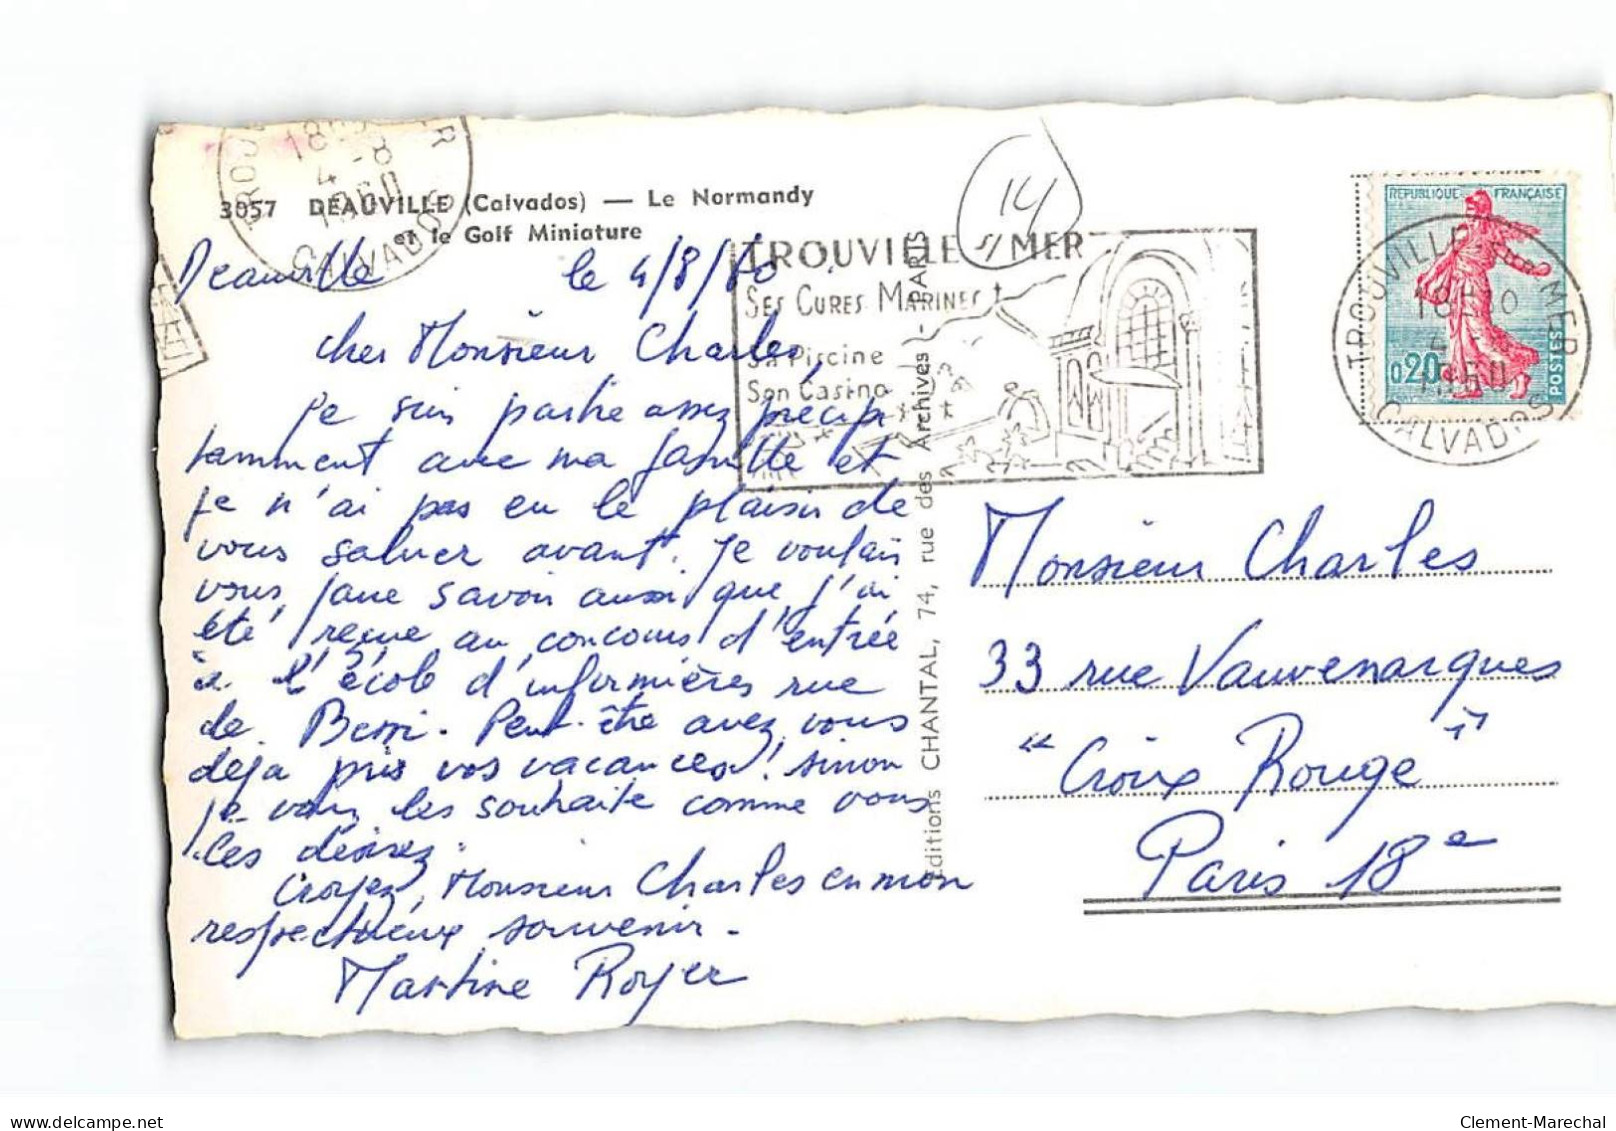 3057 DEAUVILLE (Calvados) — Le Normandy
et le Golf Miniature
18
4 -8
1960
CALVADOS
14
TROUVILLE s/ MER
SES CURES MARINES
Sa Piscine
Son Casino
REPUBLIQUE FRANÇAISE
0,20
POSTES
TROUVILLE MER
18H30
1960
CALVADOS
Deauville le 4/8/60
Cher Monsieur Charles,
Je suis partie assez précipi
tamment avec ma famille et
je n'ai pas eu le plaisir de
vous saluer avant. Je voulais
vous faire savoir aussi que j'ai
été reçue au concours d'entrée
à l'école d'infirmières rue
de Berri. Peut-être avez vous
déjà pris vos vacances! sinon
je vous les souhaite comme vous
les désirez.
Croyez, Monsieur Charles en mon
respectueux souvenir.
Martine Royer
Editions CHANTAL, 74, rue des Archives - PARIS
Monsieur Charles
33 rue Vauvenargues
"Croix Rouge"
Paris 18e
Clement-Marechal